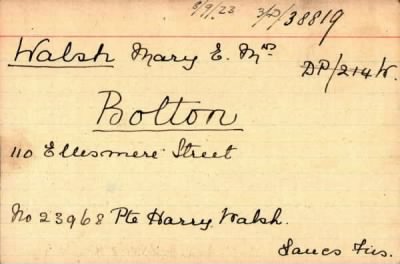 6/9/23 3/P/38819
Walsh Mary E. Mrs
DP/214W.
Bolton
110 Ellesmere Street
No 23968 Pte Harry Walsh.
Lancs Fus.